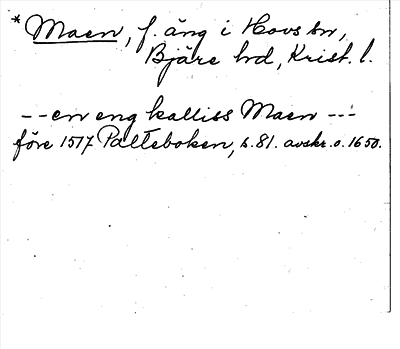 *Maen, f. äng i Hovs sn,
Bjäre hd, Krist. l.
--en eng kalliss Maen ---
före 1517 Palteboken, s. 81. avskr. o. 1650.